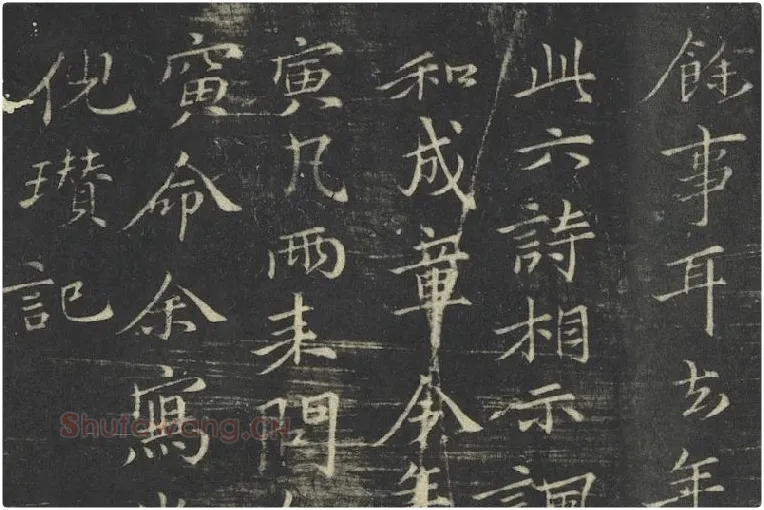 餘事耳去年
此六詩相示詞
和成章今年
寅凡兩来問
寅命余寫
倪瓚記
Shufawang.CN